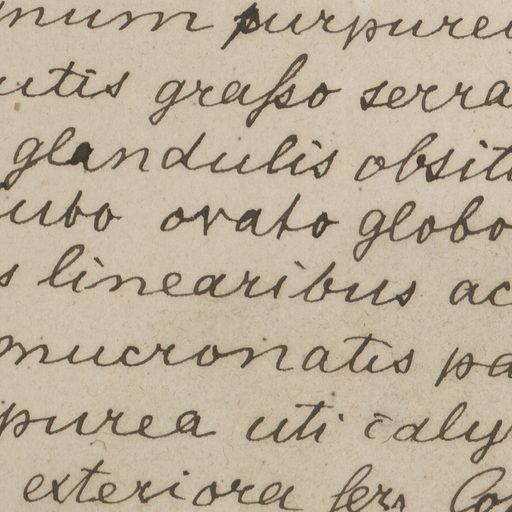 num purpureu
utis grasso serra
glandulis obsit
ubo ovato globo
s linearibus ac
mucronatis pa
purea uti caly
exteriora fer